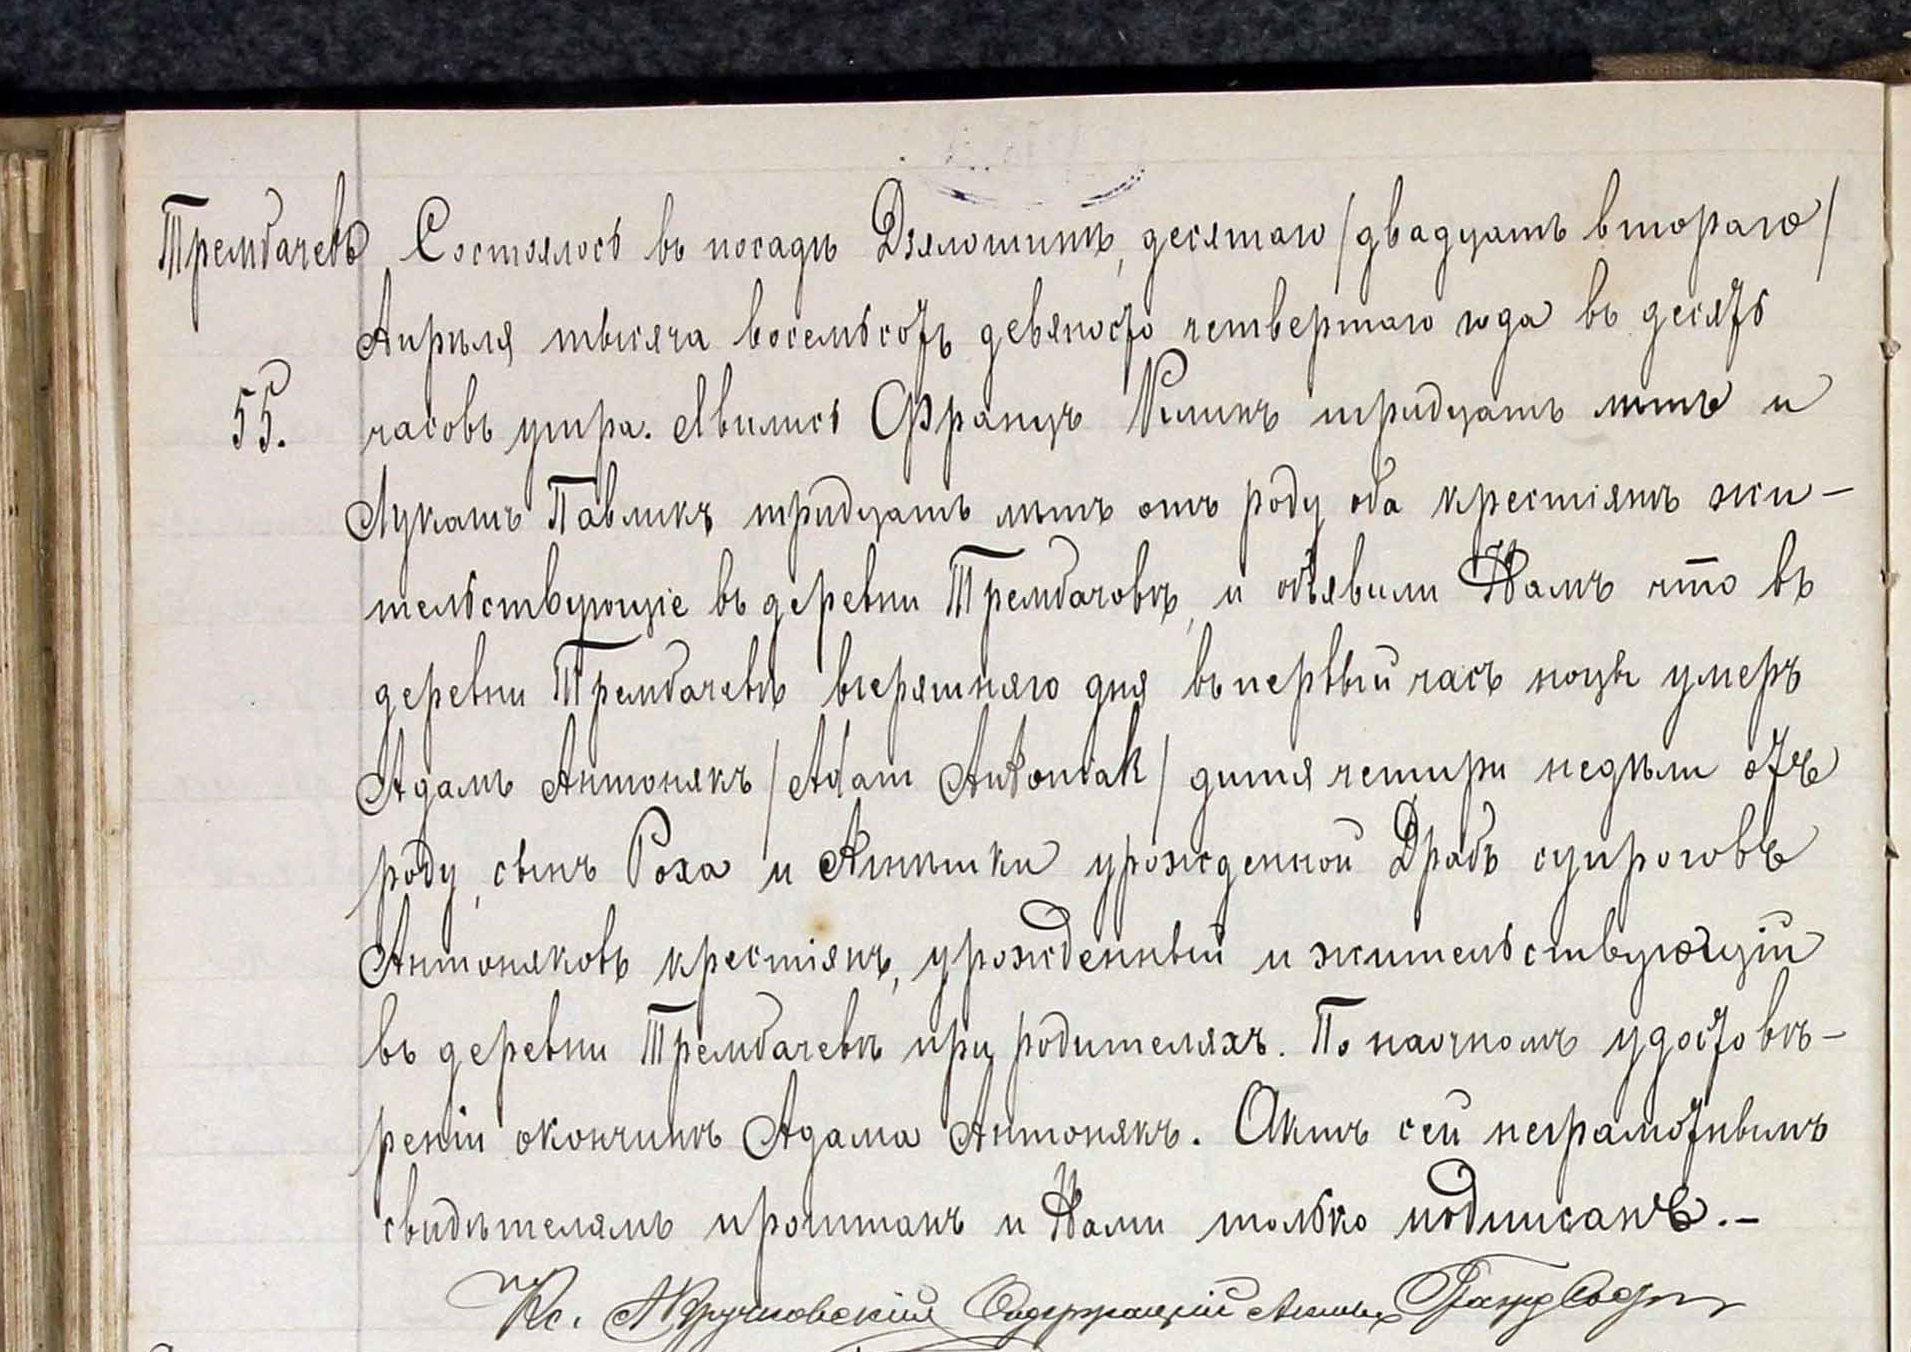 Трембачевъ Состоялось въ посадѣ Дзялошинѣ, десятаго /двадцать втораго/
Апрѣля тысяча восемьсотъ девяносто четвертаго года въ десять
55. часовъ утра. Явились Францъ тридцать лѣтъ и
Лукашъ Павликъ тридцать лѣтъ отъ роду оба крестіянѣ жи-
тельствующіе въ деревни Трембачовѣ, и объявили Намъ что въ
деревни Трембачевѣ вчеряшняго дня въ первый часъ ноцы умеръ
Адамъ Антонякъ /Adam Antoniak/ дитя четыри недѣли отъ
роду, сынъ Роха и Агнѣшки урожденной Драбъ супроговъ
Антоняковъ крестіянъ, урожденный и жительствующій
въ деревни Трембачевѣ при родителяхъ. По наочномъ удостовѣ-
реніи окончинѣ Адама Антонякъ. Актъ сей неграмотнымъ
свидѣтелямъ прочитанъ и Нами только подписанъ.-
Кс. Содержащій Акты